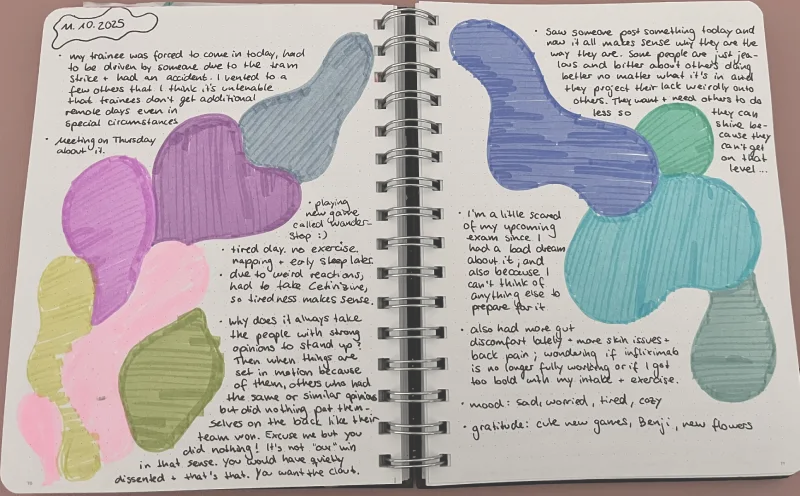 11.10.2025
• my trainee was forced to come in today, had
to be driven by someone due to the tram
strike + had an accident. I vented to a
few others that I think it's untenable
that trainees don't get additional
remote days even in
special circumstances
• Meeting on Thursday
about it.
• playing
new game
called Wander-
stop :)
• tired day. no exercise.
napping + early sleep later.
• due to weird reactions,
had to take Cetirizine,
so tiredness makes sense.
• why does it always take
the people with strong
opinions to stand up?
Then when things are
set in motion because
of them, others who had
the same or similar opinions
but did nothing pat them-
selves on the back like their
team won. Excuse me but you
did nothing! It's not "our" win
in that sense. You would have quietly
dissented + that's that. You want the clout.
• Saw someone post something today and
now it all makes sense why they are the
way they are. Some people are just jea-
lous and bitter about others doing
better no matter what it's in and
they project their lack weirdly onto
others. They want + need others to do
less so they can
shine be-
cause they
can't get
on that
level...
• I'm a little scared
of my upcoming
exam since I
had a bad dream
about it, and
also because I
can't think of
anything else to
prepare for it
• also had more gut
discomfort lately + more skin issues +
back pain; wondering if infliximab
is no longer fully working or if I got
too bold with my intake + exercise.
• mood: sad, worried, tired, cozy
• gratitude: cute new games, Benji, new flowers